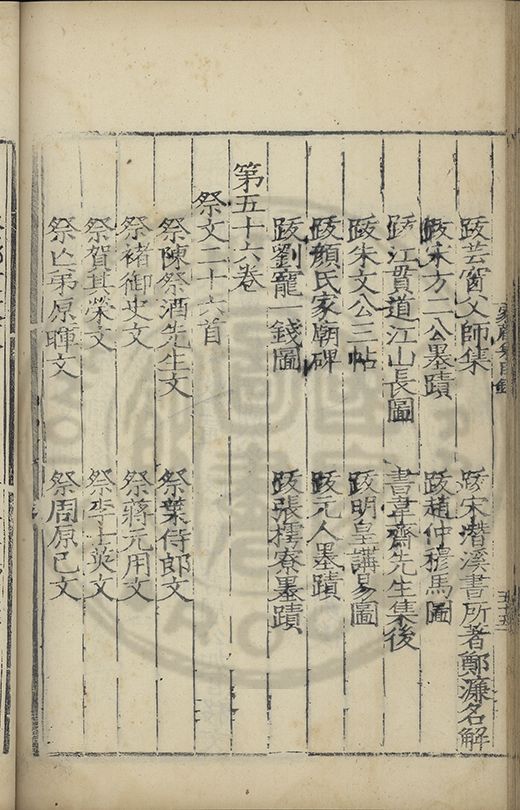 跋芸窗父師集　跋宋潛溪書所著鄭濂名解
跋宋方二公墨蹟　跋趙仲穆馬圖
跋江貫道江山長圖　書韋齋先生集後
跋朱文公三帖　跋明皇講易圖
跋顏氏家廟碑　跋元人墨蹟
跋劉寵一錢圖　跋張樗寮墨蹟
第五十六卷
祭文二十六首
祭陳祭酒先生文　祭葉侍郎文
祭褚御史文　祭蔣元用文
祭賀其榮文　祭李士英文
祭亡弟原暉文　祭周原已文